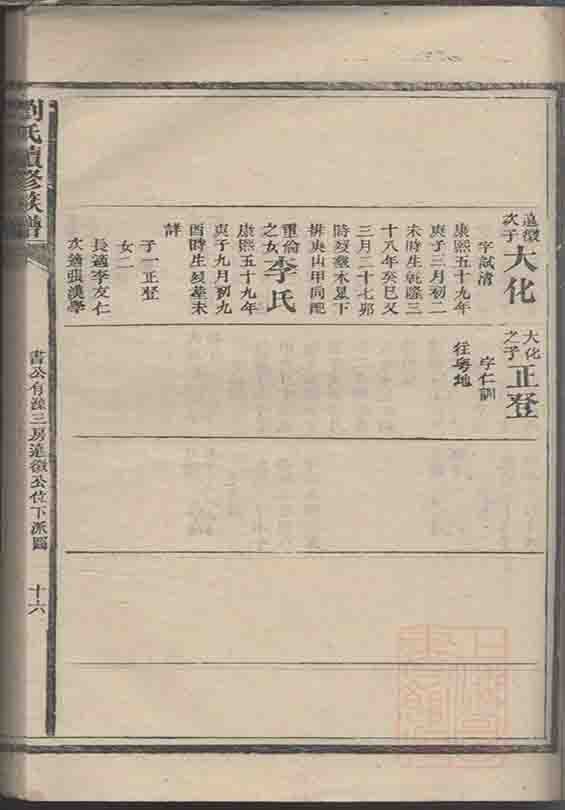 劉氏續修族譜
達徵次子大化
字試清
康熙五十九年
庚子三月初二
未時生乾隆三
十八年癸巳又
三月二十七卯
時歿塟木星下
排庚山甲向配
重倫之女李氏
康熙五十九年
庚子九月初九
酉時生歿塟未
詳
子一正登
女二
長適李友仁
次適張漢學
大化之子正登
字仁訓
往粵地
書公有 三房達徵公位下派圖
十六